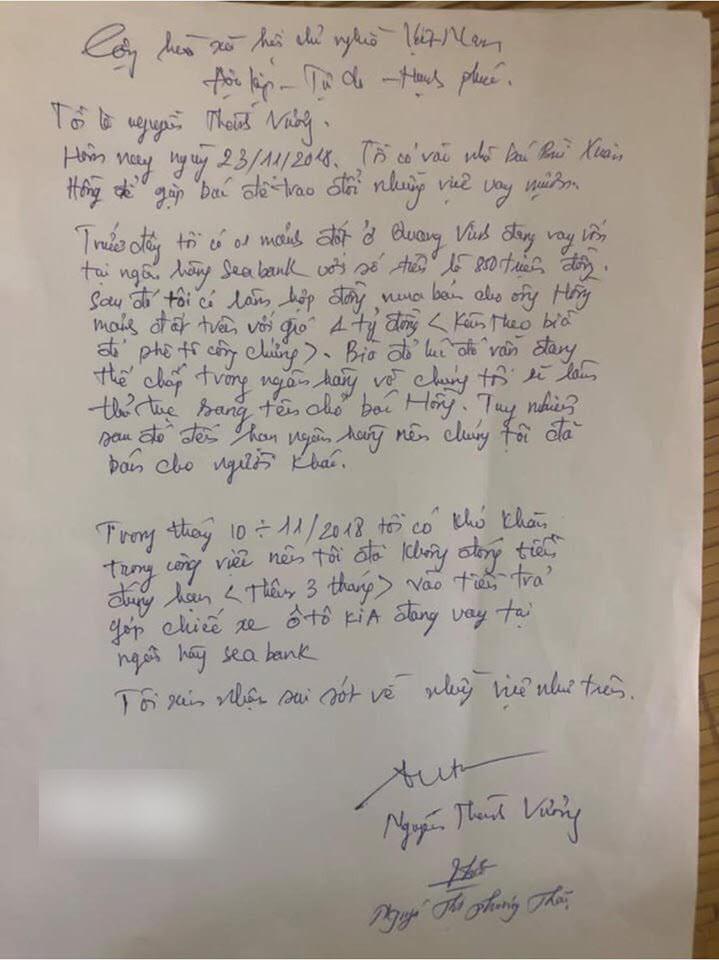 Cộng hoà xã hội chủ nghĩa Việt Nam
Độc lập - Tự do - Hạnh phúc.
Tôi là Nguyễn Thành Vưởng.
Hôm nay ngày 23/11/2018. Tôi có vào nhà bác Xuân
Hồng để gặp bác để trao đổi những việc vay mượn.
Trước đây tôi có 01 mảnh đất ở Quang Vinh đang vay vốn
tại ngân hàng Seabank với số tiền là 850 triệu đồng.
Sau đó tôi có làm hợp đồng mua bán cho ông Hồng
mảnh đất trên với giá 1 tỷ đồng <Kèm theo bìa
đỏ phô tô công chứng>. Bìa đỏ lúc đó vẫn đang
thế chấp trong ngân hàng và chúng tôi sẽ làm
thủ tục sang tên cho bác Hồng. Tuy nhiên
sau đó đến hạn ngân hàng nên chúng tôi đã
bán cho người khác.
Trong tháng 10 ÷ 11/2018 tôi có khó khăn
trong công việc nên tôi đã không đóng tiền
đúng hạn < 3 tháng> vào tiền trả
góp chiếc xe ô tô KIA đang vay tại
ngân hàng seabank
Tôi xin nhận sai sót về những việc như trên.
Nguyễn Thành Vưởng
Nguyễn Thị Phương Thảo